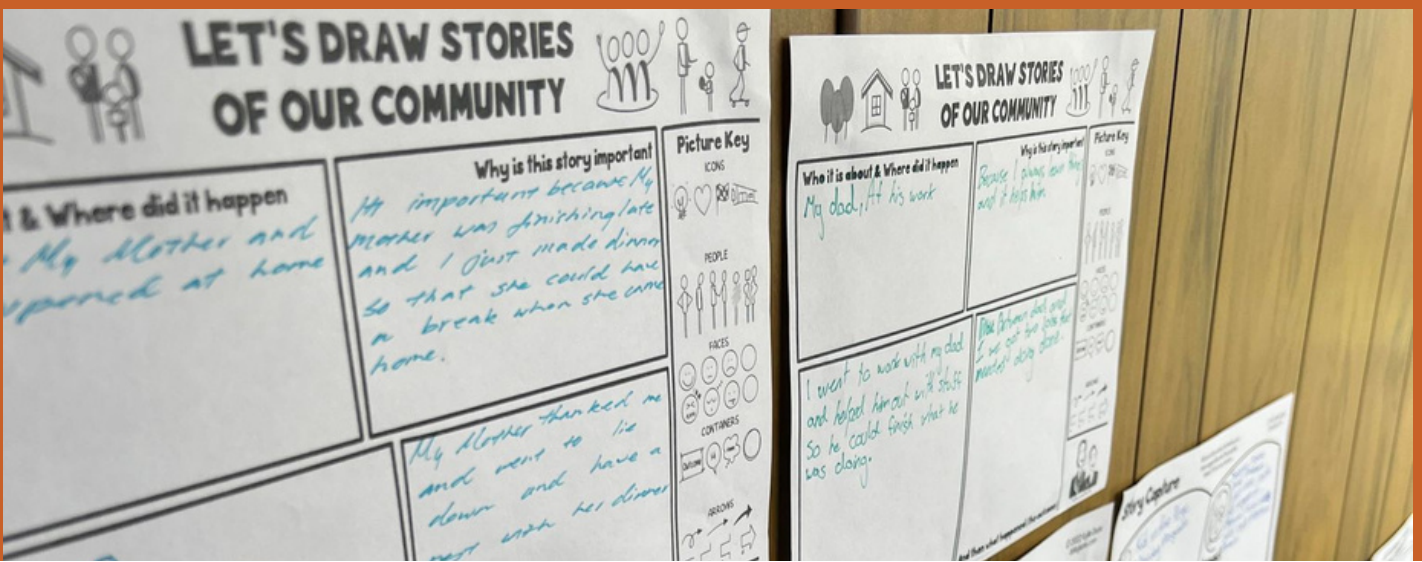 LET'S DRAW STORIES
OF OUR COMMUNITY
& Where did it happen
My Mother and
at home
Why is this story important
important because My
mother was finishing late
and I just made dinner
so that she could have
a break when she came
home.
My Mother thanked me
and went to lie
down and have a
rest with her dinner
Picture Key
ICONS
PEOPLE
FACES
CONTAINERS
ARROWS
LET'S DRAW STORIES
OF OUR COMMUNITY
Who it is about & Where did it happen
My dad, At his work
Why is this story important
Because I always learn things
and it helps him.
I went to work with my dad
and helped him out with stuff
So he could finish what he
was doing.
and
I we got two jobs that
doing done.
And then what happened (the outcome)
Picture Key
ICONS
PEOPLE
FACES
CONTAINERS
ARROWS
Story Capture